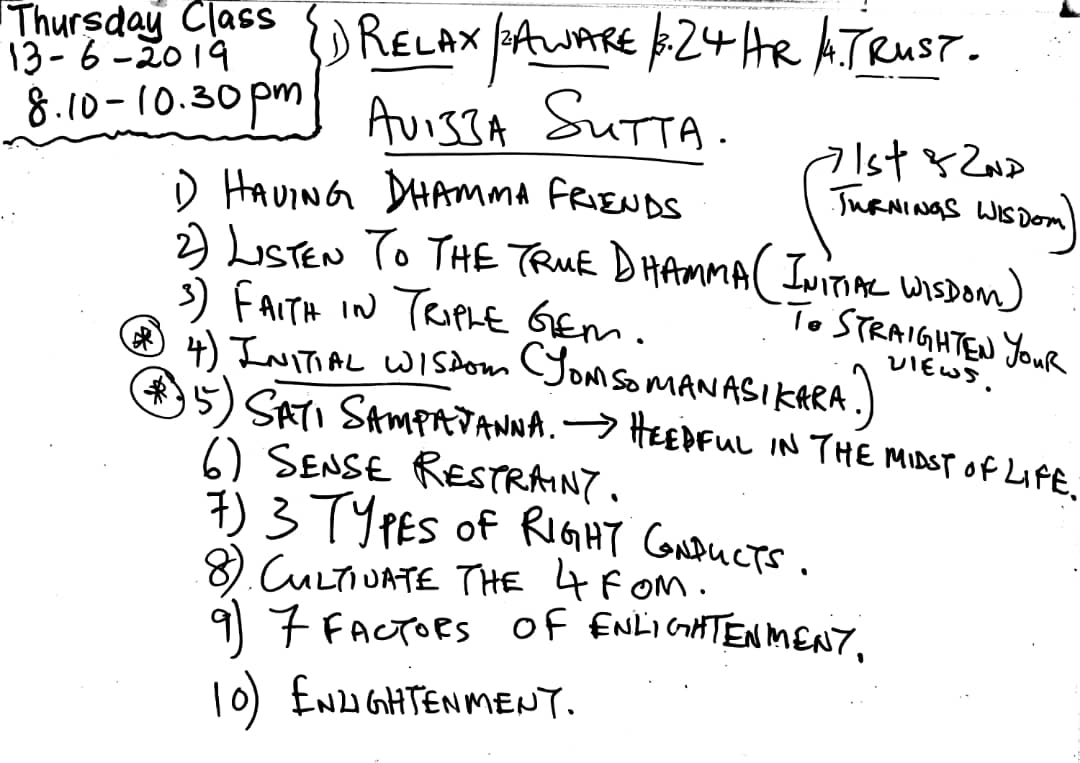 Thursday Class
13-6-2019
8.10-10.30pm
1) RELAX /2.AWARE /3.24 HR /4.TRUST.
AVIJJA SUTTA.
1) HAVING DHAMMA FRIENDS
1st & 2ND
TURNINGS WISDOM)
2) LISTEN TO THE TRUE DHAMMA (INITIAL WISDOM)
To STRAIGHTEN YOUR
VIEWS.
3) FAITH IN TRIPLE GEM.
4) INITIAL WISDOM (YOMSOMANASIKARA.)
5) SATI SAMPAJANNA. → HEEDFUL IN THE MIDST OF LIFE.
6) SENSE RESTRAINT.
7) 3 TYPES OF RIGHT CONDUCTS.
8). CULTIVATE THE 4 FOM.
9) 7 FACTORS OF ENLIGHTENMENT.
10) ENLIGHTENMENT.